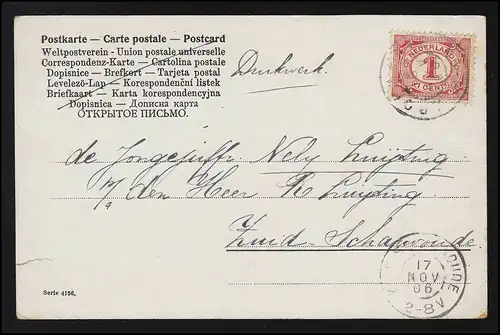 Postkarte — Carte postale — Postcard
Weltpostverein - Union postale universelle
Correspondenz-Karte — Cartolina postale
Dopisnice — Brefkort — Tarjeta postal
Levelező-Lap — Korespondenční listek
Briefkaart — Karta korespondencyjna
Dopisnica — Дописна карта
ОТКРЫТОЕ ПИСЬМО.
Drukwerk.
NEDERLAND
1
CENT
de Jongejuffr. Nely Luijting
p/a den Heer R Luijting
Zuid Scharwoude
17
NOV
06
2-8V
Serie 4156.